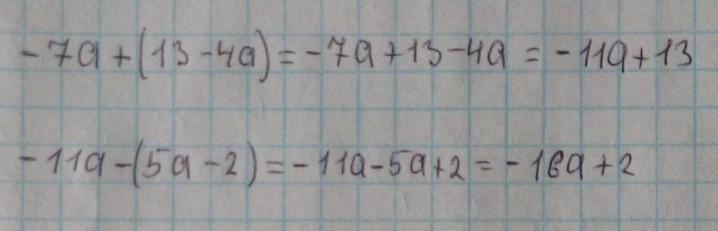 -7a+(13-4a)=-7a+13-4a=-11a+13
-11a-(5a-2)=-11a-5a+2=-16a+2